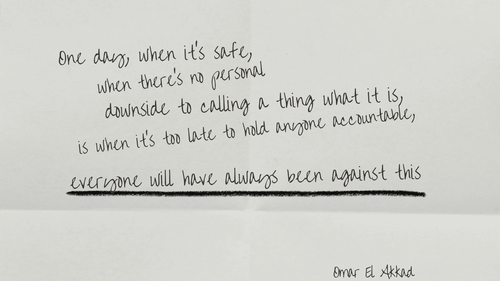 One day, when it's safe,
when there's no personal
downside to calling a thing what it is,
is when it's too late to hold anyone accountable,
everyone will have always been against this
Omar El Akkad